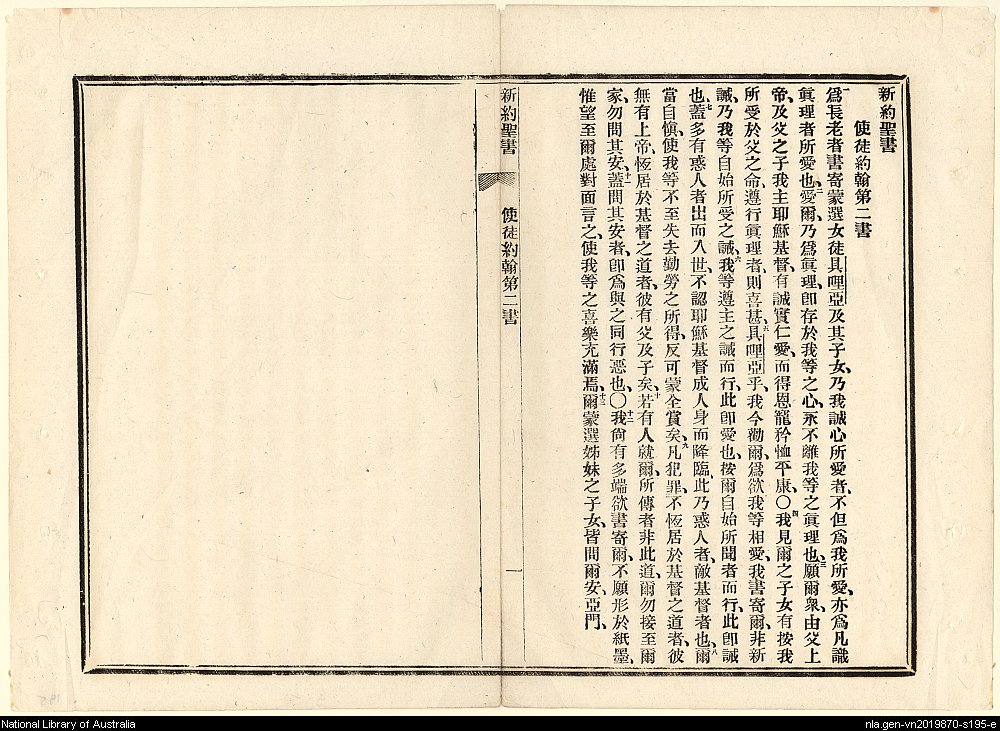 新約聖書
使徒約翰第二書
一爲長老者書寄蒙選女徒具哩亞及其子女、乃我誠心所愛者、不但爲我所愛、亦爲凡識
眞理者所愛也、二愛爾乃爲眞理、卽存於我等之心、永不離我等之眞理也、三願爾衆、由父上
帝、及父之子我主耶穌基督、有誠實仁愛、而得恩寵矜恤平康、〇四我見爾之子女有按我
所受於父之命、遵行眞理者、則喜甚、五具哩亞乎、我今勸爾、爲欲我等相愛、我書寄爾、非新
誡、乃我等自始所受之誡、六我等遵主之誡而行、此卽愛也、按爾自始所聞者而行、此卽誡
也、七蓋多有惑人者出而入世、不認耶穌基督成人身而降臨、此乃惑人者、敵基督者也、八爾
當自愼、使我等不至失去勤勞之所得、反可蒙全賞矣、九凡犯罪、不恆居於基督之道者、彼
無有上帝、恆居於基督之道者、彼有父及子矣、十若有人就爾、所傳者非此道、爾勿接至爾
家、勿問其安、十一蓋問其安者、卽爲與之同行惡也、〇十二我尙有多端欲書寄爾、不願形於紙墨、
惟望至爾處對面言之、使我等之喜樂充滿焉、十三爾蒙選姊妹之子女、皆問爾安、亞門、
新約聖書 使徒約翰第二書 一
National Library of Australia
nla.gen-vn2019870-s195-e